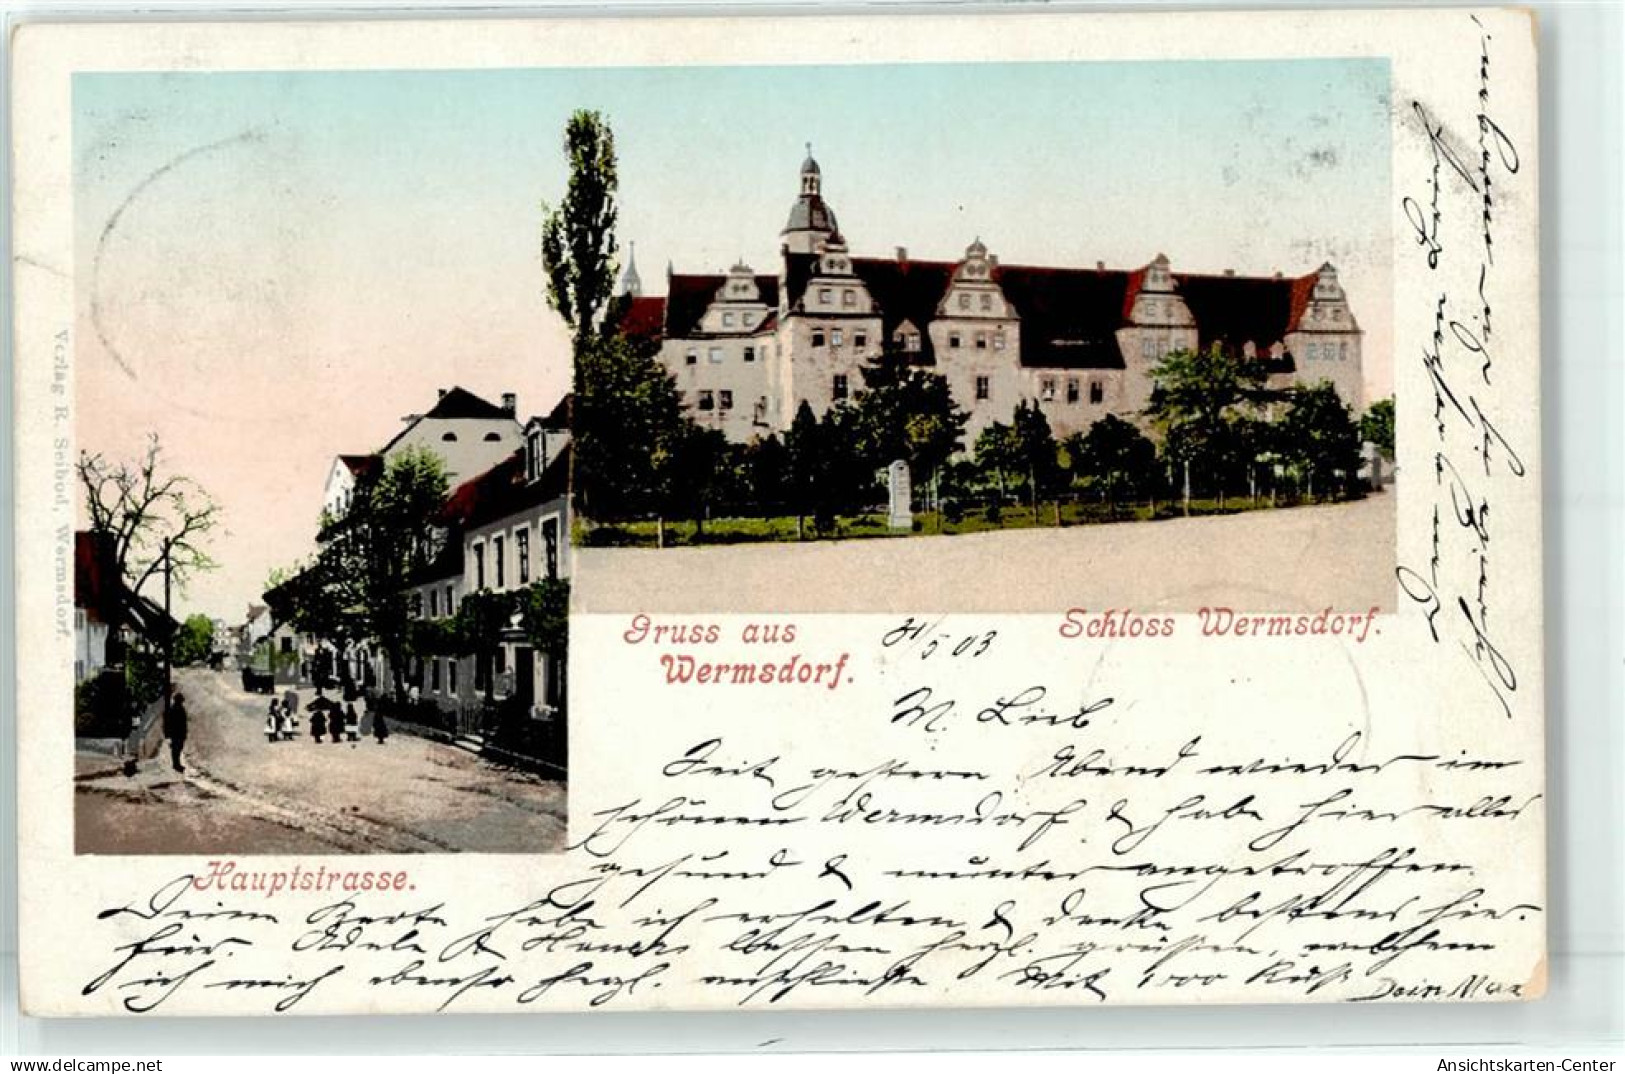 Verlag R. Seibod, Wermsdorf.
Gruss aus
Wermsdorf.
31/5 03
Schloss Wermsdorf.
Hauptstrasse.
M. Lieb
Seit gestern Abend wieder im
schönen Wermsdorf & habe hier alles
gesund & munter angetroffen.
Deine Karte habe ich erhalten & danke bestens hie-
für. Adele & lassen herzl. grüssen, welchem
ich mich ebenso herzl. anschließe. Mit 1000 Küß Dein Max
Den Brief
Ansichtskarten-Center